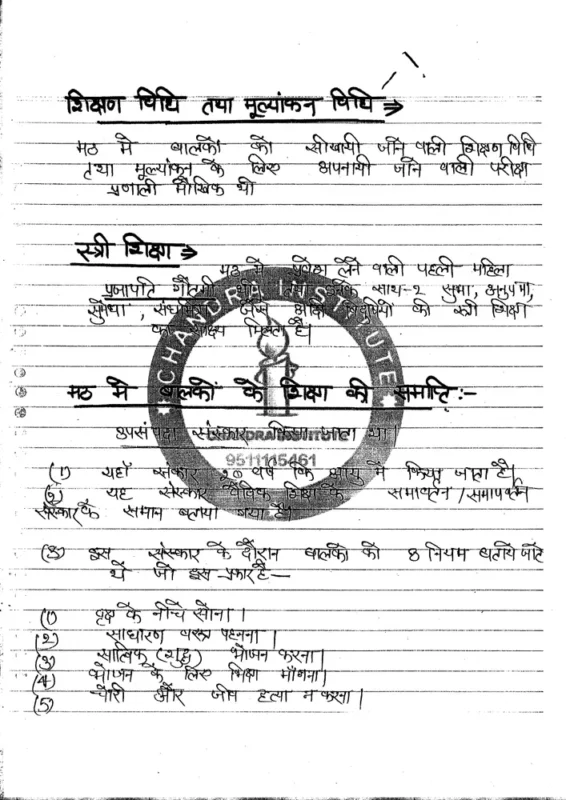 शिक्षण विधि तथा मूल्यांकन विधि ⇒
मठ मे बालको को सीखायी जाने वाली शिक्षण विधि
तथा मूल्यांकन के लिए अपनायी जाने वाली परीक्षा
प्रणाली मौखिक थी
स्त्री शिक्षा ⇒
मठ मे प्रवेश लेने वाली पहली महिला
प्रजापति गौतमी थी तथा इनके साथ-२ सुभा, अनुपमा,
सुमेधा, संघमित्रा जैसे आदि विदुषियो की स्त्री शिक्षा
का साक्ष्य मिलता है।
मठ मे बालको के शिक्षा की समाप्ति :-
उपसंपदा संस्कार किया जाता था।
CHANDRA INSTITUTE
9511115461
(1) यहाँ संस्कार २० वर्ष कि आयु मे किया जाता है।
(2) यह संस्कार वैदिक शिक्षा के समावर्तन/समापवर्तन
संस्कार के समान बताया गया है।
(3) इस संस्कार के दौरान बालको को 8 नियम बताये जाते
थे जो इस प्रकार है—
(1) वृक्ष के नीचे सोना।
(2) साधारण वस्त्र पहनना।
(3) सात्विक (शुद्ध) भोजन करना।
(4) भोजन के लिए भिक्षा माँगना।
(5) चोरी और जीव हत्या न करना।